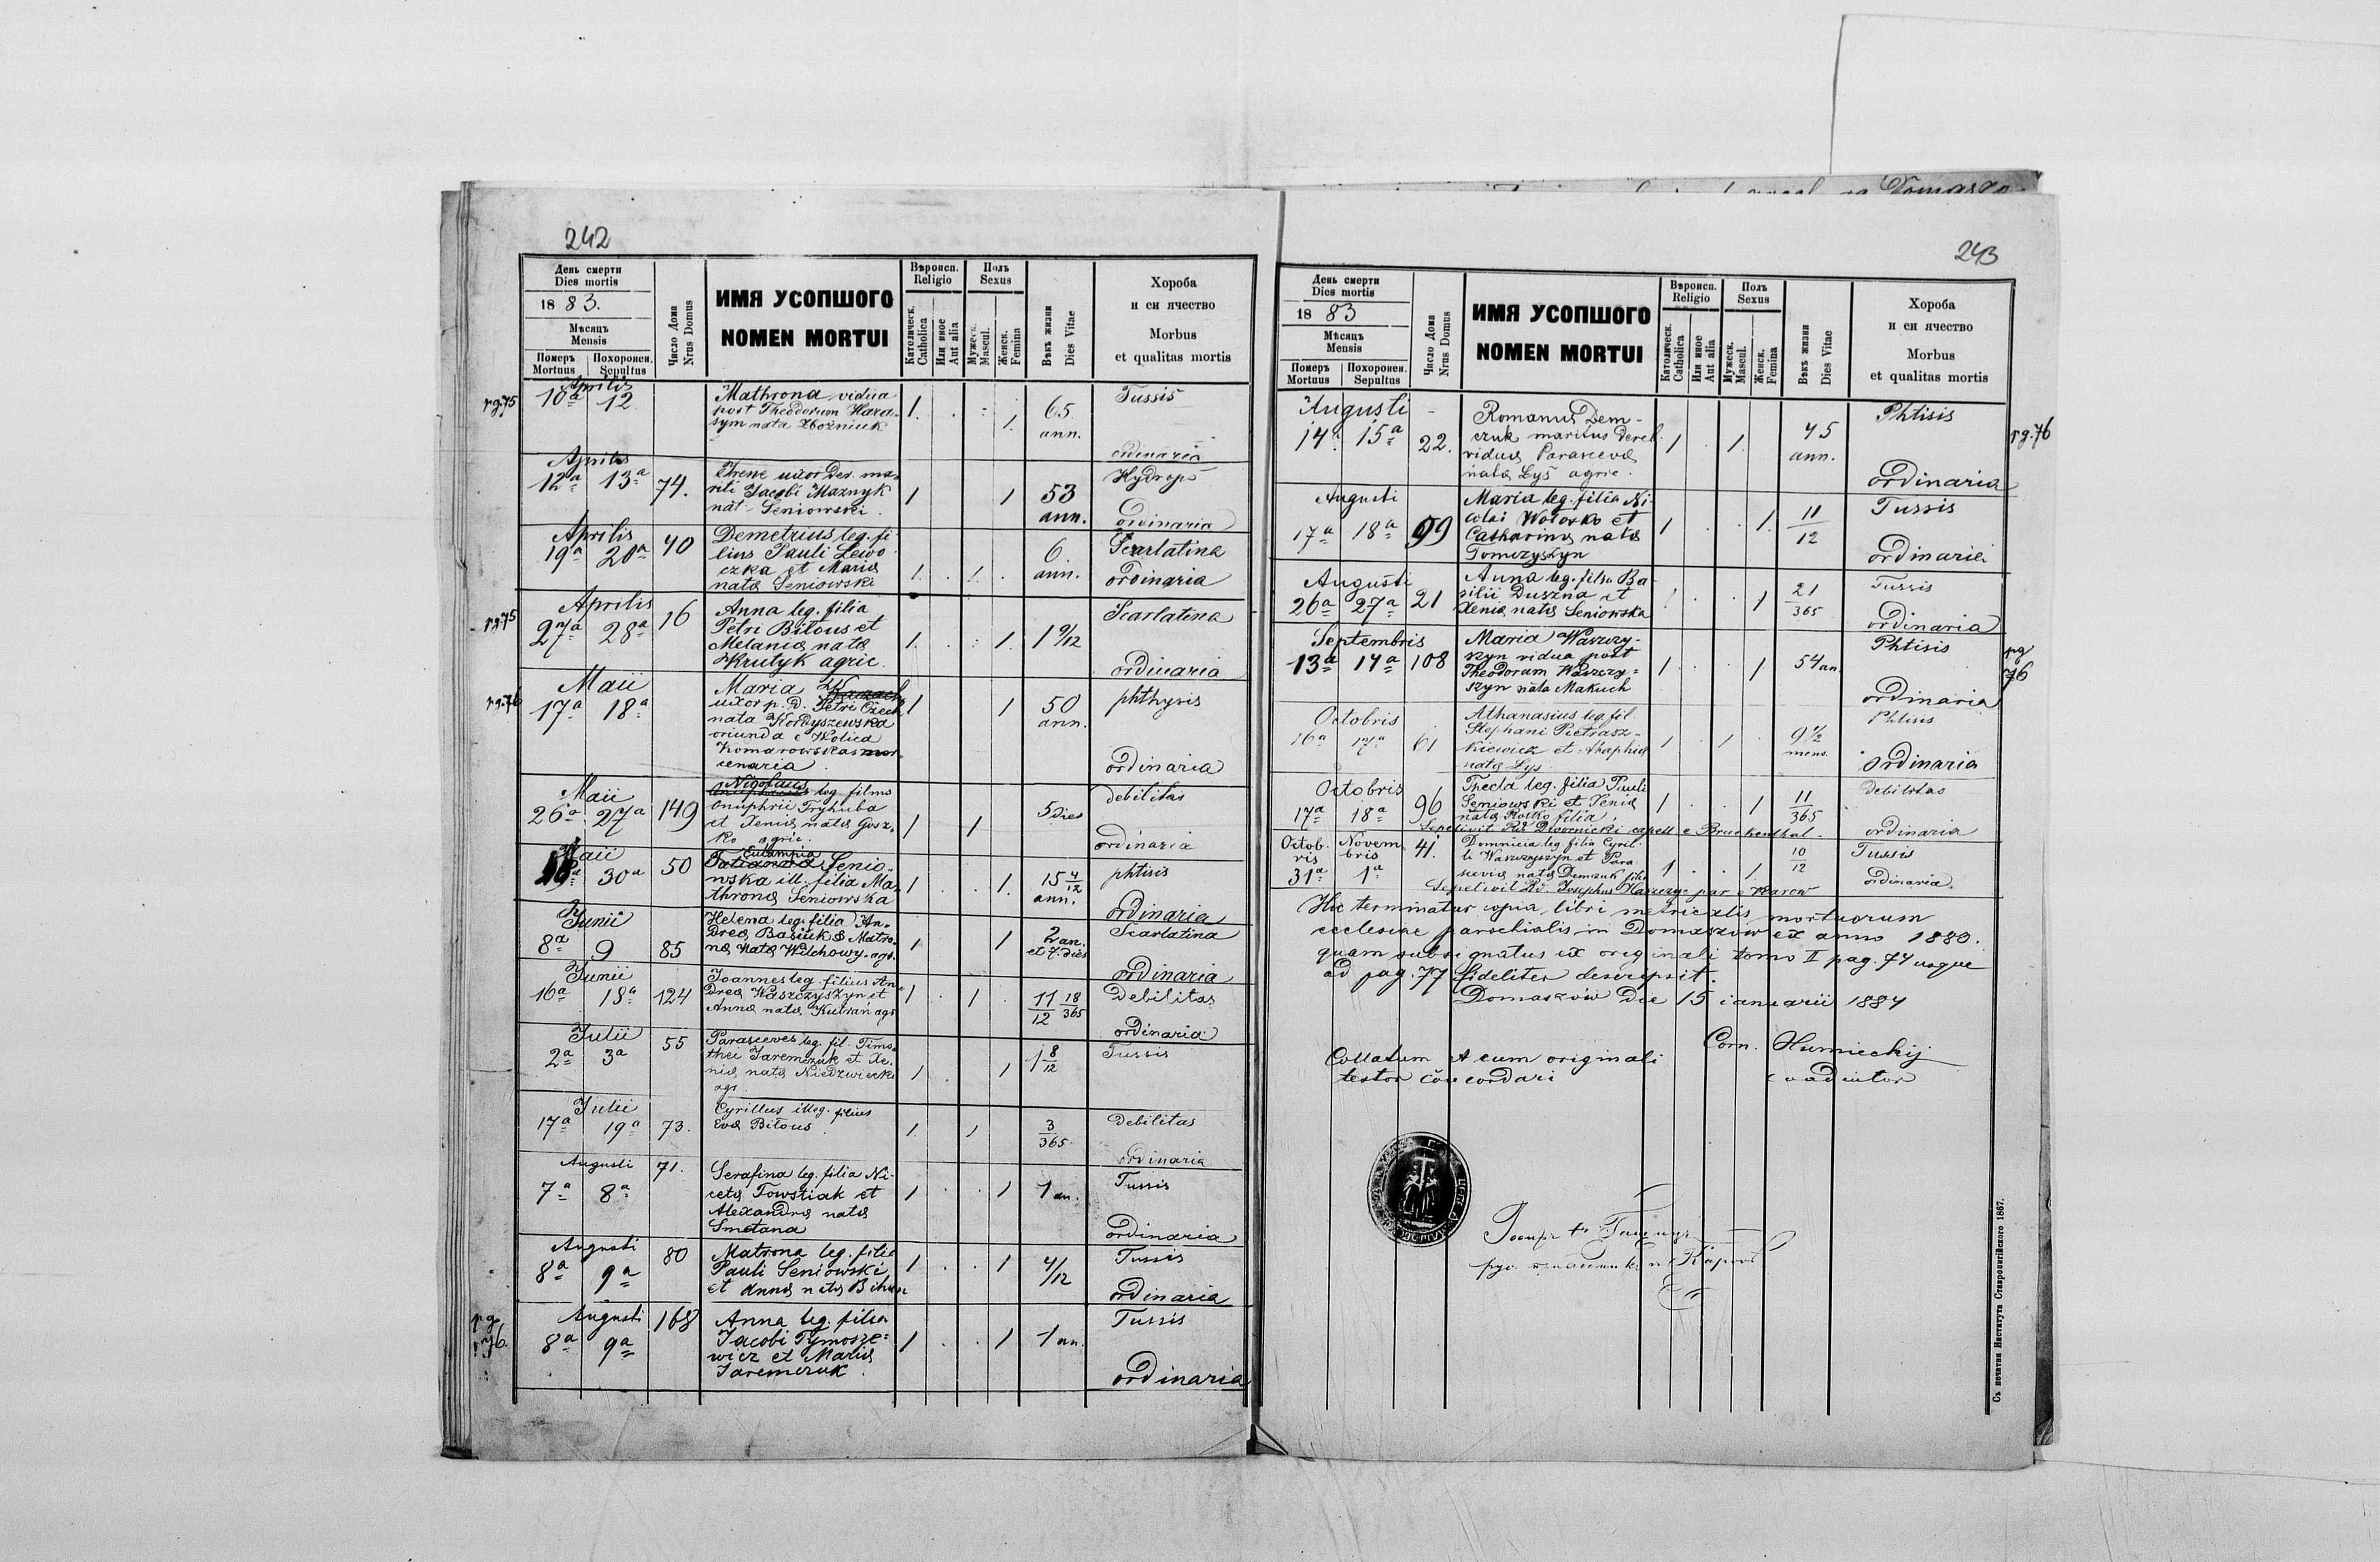 242
День смерти
Dies mortis
1883.
Мѣсяцъ
Mensis
Померъ
Mortuus
Похоронен.
Sepultus
Число Дома
Nrus Domus
ИМЯ УСОПШОГО
NOMEN MORTUI
Вѣроисп.
Religio
Католическ.
Catholica
Или иное
Aut alia
Полъ
Sexus
Мужеск.
Mascul.
Женск.
Femina
Вѣкъ жизни
Dies Vitae
Хороба
и еи ячество
Morbus
et qualitas mortis
pg. 75
Aprilis
10a 12
Mathrona vidua
post Theodorum Hara-
sym nata Zbożniuk
1 . . 1.
65.
ann.
Tussis
ordinaria
Aprilis
12a 13a 74.
Irene uxor Der. ma-
riti Jacobi Maznyk
nat. Seniowski.
1 1
53
ann.
Hydrops
ordinaria
Aprilis
19a 20a 40
Demetrius leg. fi-
lius Pauli Lewo
czka et Maria
nata Seniowski
1. . 1. .
6.
ann.
Scarlatina
ordinaria
pg. 75
Aprilis
27a 28a 16
Anna leg. filia
Petri Biłous et
Melania nata
Krutyk agric.
1. . . 1.
1 9/12
Scarlatina
ordinaria
pg. 76
Maii
17a 18a
Maria
uxor p. D. Petri
nata Kordyszewska
oriunda e Wolica
Komarowska mer-
cenaria.
1 1
50
ann.
phthysis
ordinaria
Maii
26a 27a 149
Nicolaus
leg filius
Onuphrii Tryhuba
et Xenia nata Gosz-
ko agric.
1 1
5 dies
debilitas
ordinaria
Maii
30a 50
Eulampia
Senio-
wska ill. filia Ma-
throna Seniowska
1 . . 1.
15 4/12
ann.
phtisis
ordinaria
Junii
8a 9 85
Helena leg. filia An-
drea Basiuk & Matro-
na nata Wilchowy. agr.
1 . 1
2 an.
et 7. dies
Scarlatina
ordinaria
Junii
16a 18a 124
Joannes leg. filius An-
drea Waszczyszyn et
Anna nata Kutran agr
1 . 1
11/12 18/365
Debilitas
ordinaria
Julii
2a 3a 55
Parasceves leg. fil. Timo-
thei Jaremczuk et Xe-
nia nata Niedzwiecki
agr.
1 . 1
1 8/12
Tussis
Julii
17a 19a 73.
Cyrillus illeg. filius
Eva Biłous
1. . 1
3/365
Debilitas
ordinaria
Augusti
7a 8a 71.
Serafina leg. filia Ni-
ceta Towstiak et
Alexandra nata
Smetana
1 . . 1
1 an.
Tussis
ordinaria
Augusti
8a 9a 80
Matrona leg. filia
Pauli Seniowski
et Anna nata Bihun
1 . . 1
4/12
Tussis
ordinaria
pg
76.
Augusti
8a 9a 168
Anna leg. filia
Jacobi Tymosze-
wicz et Maria
Jaremczuk.
1 . . 1
1 an.
Tussis
ordinaria
243
День смерти
Dies mortis
1883
Мѣсяцъ
Mensis
Померъ
Mortuus
Похоронен.
Sepultus
Число Дома
Nrus Domus
ИМЯ УСОПШОГО
NOMEN MORTUI
Вѣроисп.
Religio
Католическ.
Catholica
Или иное
Aut alia
Полъ
Sexus
Мужеск.
Mascul.
Женск.
Femina
Вѣкъ жизни
Dies Vitae
Хороба
и еи ячество
Morbus
et qualitas mortis
Augusti
14a 15a 22.
Romanus Dem-
czuk maritus derel.
vidua Parasceva
nata Lyś agric.
1 . 1.
45
ann.
Phtisis
ordinaria
pg. 76
Augusti
17a 18a 99
Maria leg. filia Ni-
colai Wołosko et
Catharina nata
Tomczyszyn
1 . . 1.
11/12
Tussis
ordinaria
Augusti
26a 27a 21
Anna leg. filia Ba-
silii Duszna et
Xenia nata Seniowska
1 . . 1
21/365
Tussis
ordinaria
Septembris
13a 14a 108
Maria Waszczy-
szyn vidua post
Theodoram Waszczy-
szyn nata Makuch
1 . . 1
54 an
Phtisis
ordinaria
pg
76
Octobris
16a 17a 61
Athanasius leg. fil.
Stephani Pietrasz-
kiewicz et Ahaphia
nata Lys
1 . 1 .
9 1/2
mens.
Phtisis
ordinaria
Octobris
17a 18a 96
Thecla leg. filia Pauli
Seniowski et Xenia
nata Kotko filia
1 . . 1
11/365
Debilitas
ordinaria
Sepelivit Rd Dwornicki capell e Bruckenthal.
Octob-
ris
31a
Novem-
bris
1a
41.
Domnicia leg. filia Cyril-
li Waszczyszyn et Para
scevia nata Demczuk filia
1 . . 1.
10/12
Tussis
ordinaria.
Sepelivit Rd. Josephus par e Karow
Hic terminatur copia libri metricalis mortuorum
ecclesiae parochialis in Domaszów ex anno 1883.
quam subsignatus ex originali tomo II pag. 74 usque
ad pag. 77 fideliter descripsit.
Domaszów die 15 ianuarii 1884
Corn. Humieckij
coadiutor
Collatum et cum originali
testor concordari
Съ печатни Института Ставропигійского 1867.